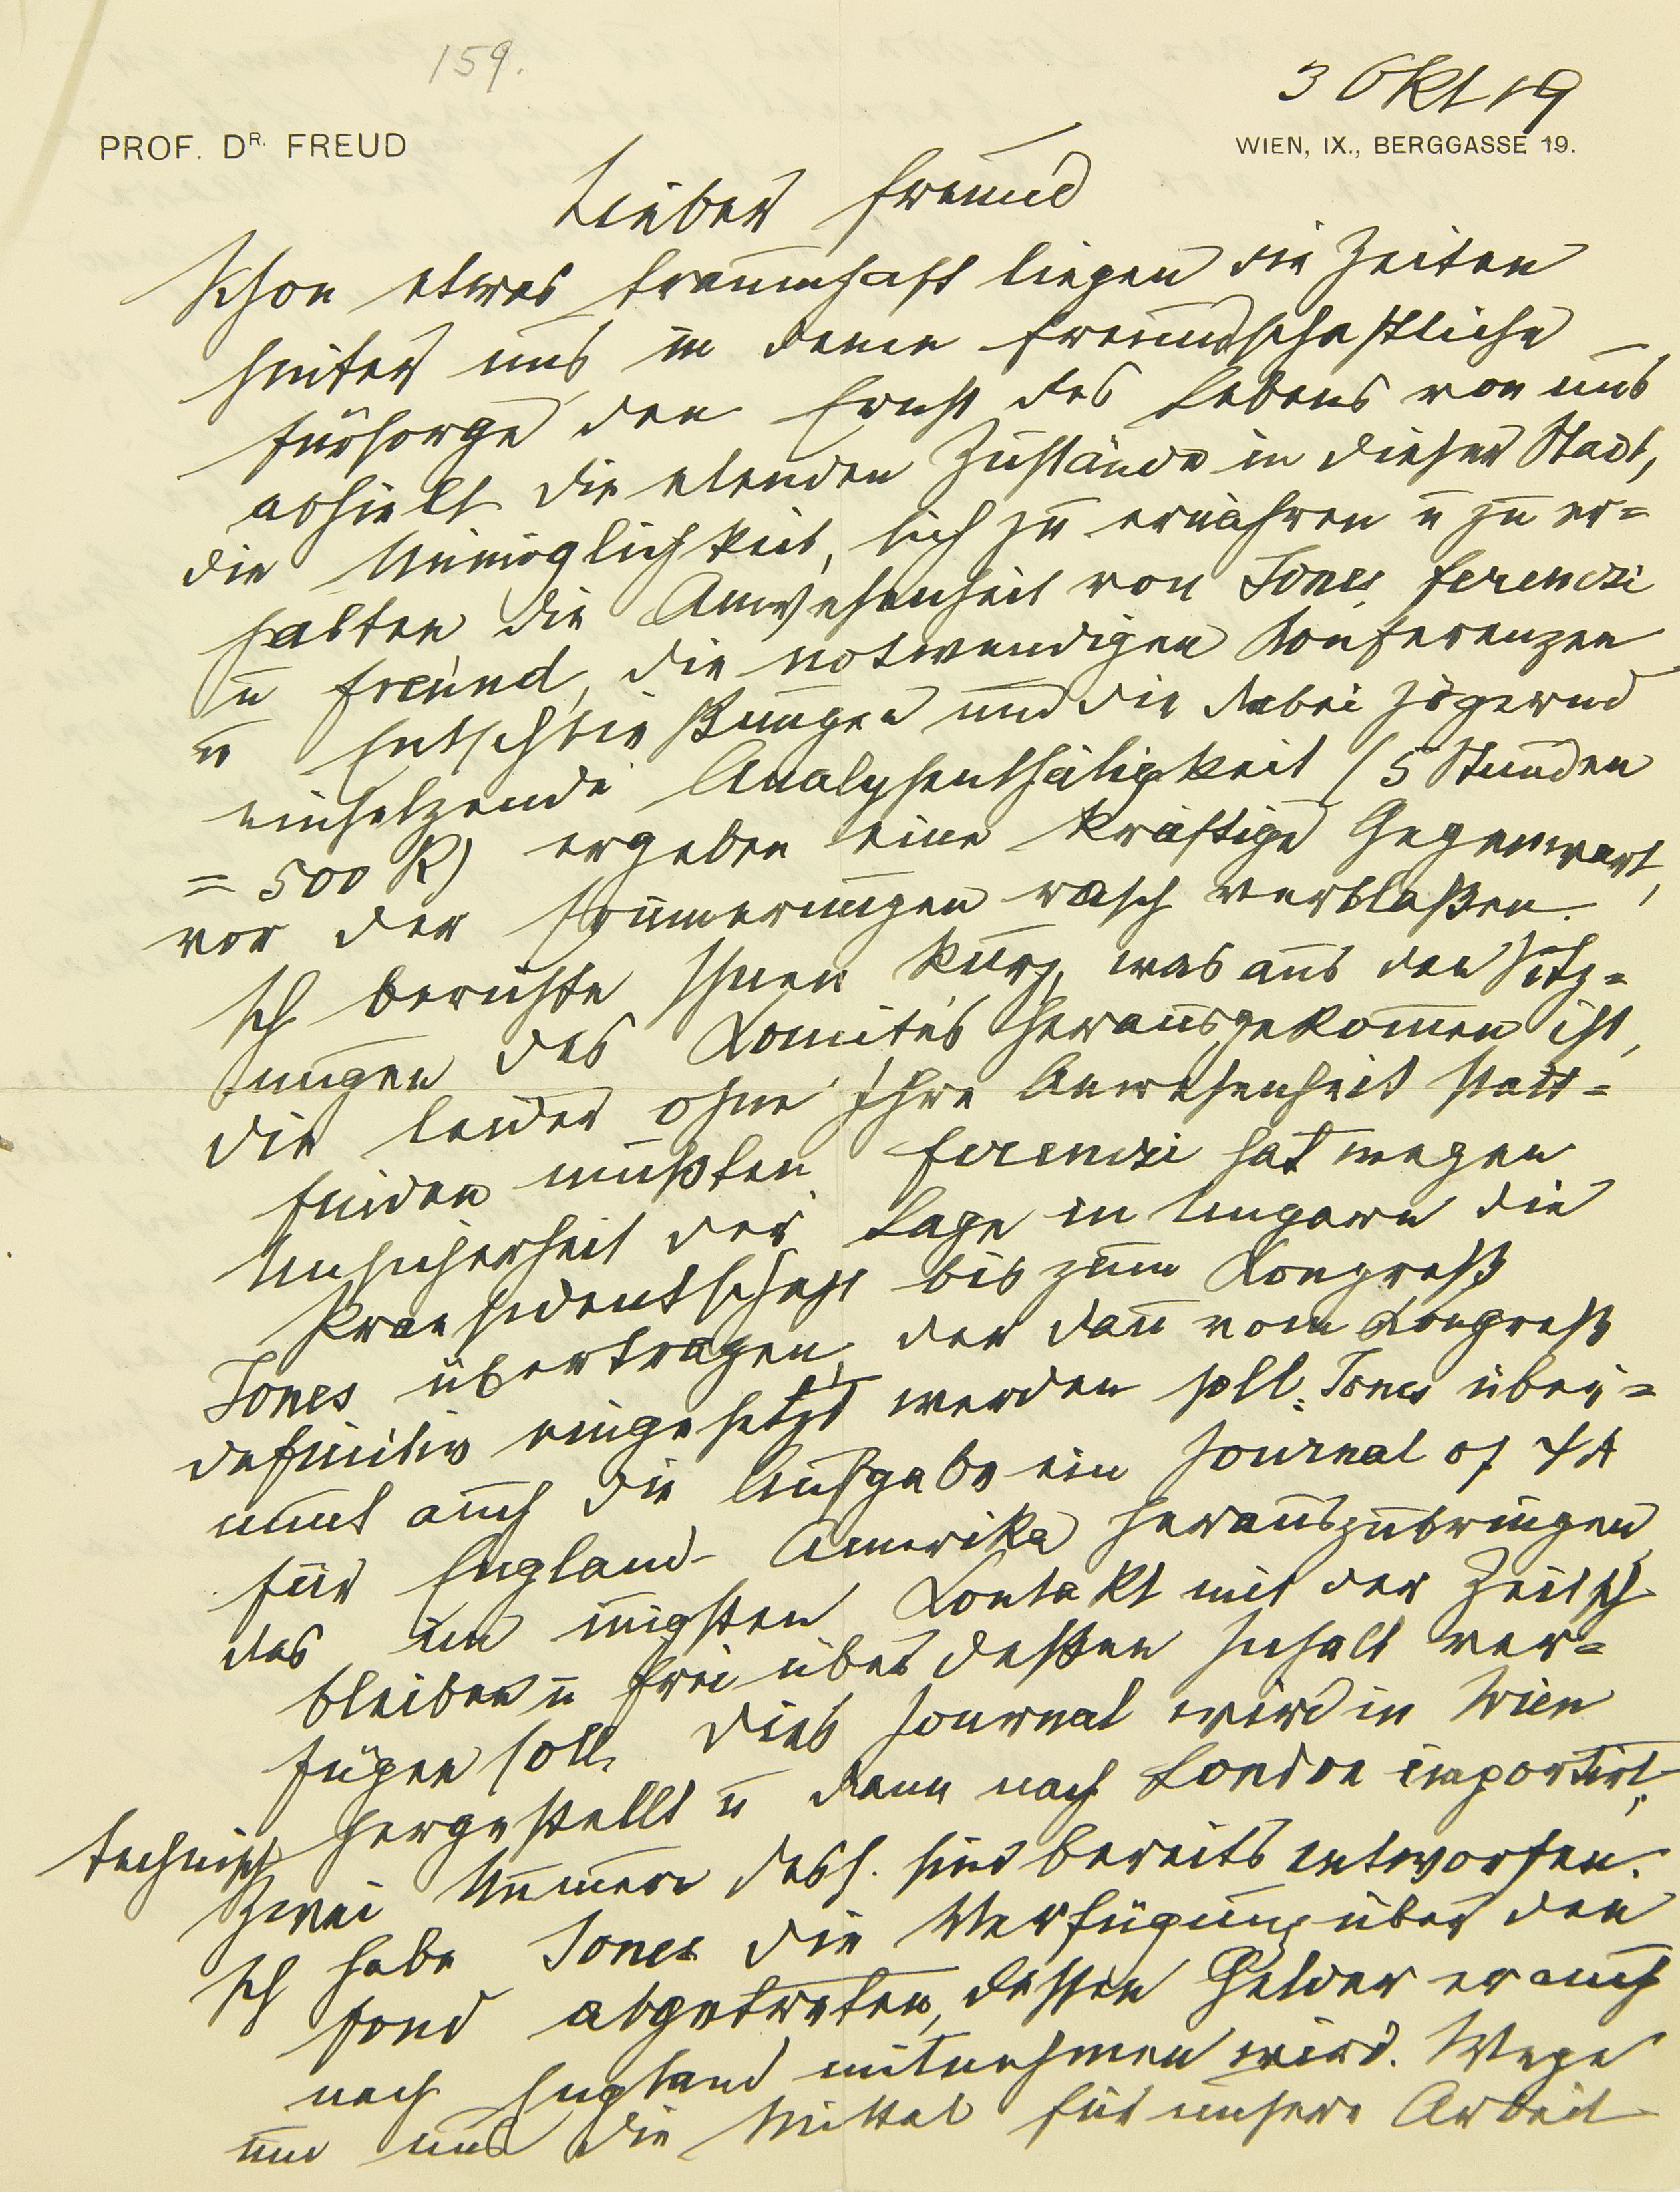 159.
3 Okt 19
PROF. DR. FREUD
WIEN, IX., BERGGASSE 19.
Lieber Freund
Schon etwas traumhaft liegen die Zeiten
hinter uns in denen freundschaftliche
Fürsorge den Ernst des Lebens von uns
abhielt. Die elenden Zustände in dieser Stadt,
die Unmöglichkeit, sich zu ernähren u zu er=
halten, die Anwesenheit von Jones, Ferenczi
u Freund, die notwendigen Konferenzen
u Entschließungen und die dabei zögernd
einsetzende Analysenthätigkeit (5 Stunden
= 500 K) ergeben eine kräftige Gegenwart,
vor der Erinnerungen rasch verblaßen.
Ich berichte Ihnen kurz, was aus den Sitz=
ungen des Komités herausgekommen ist,
die leider ohne Ihre Anwesenheit statt=
finden mußten. Ferenczi hat wegen
Unsicherheit der Lage in Ungarn die
Praesidentschaft bis zum Kongreß
Jones übertragen, der dann vom Kongreß
definitiv eingesetzt werden soll. Jones über=
nimmt auch die Aufgabe ein Journal of ΨA
für England-Amerika herauszubringen,
das in innigstem Kontakt mit der Zeitsch
bleiben u frei über deßen Inhalt ver=
fügen soll. Dies Journal wird in Wien
technisch hergestellt u dann nach London importirt,
zwei Nummern dess. sind bereits entworfen.
Ich habe Jones die Verfügung über den
Fond abgetreten, dessen Gelder er auch
nach England mitnehmen wird. Wege
um uns die Mittel für unsere Arbeit